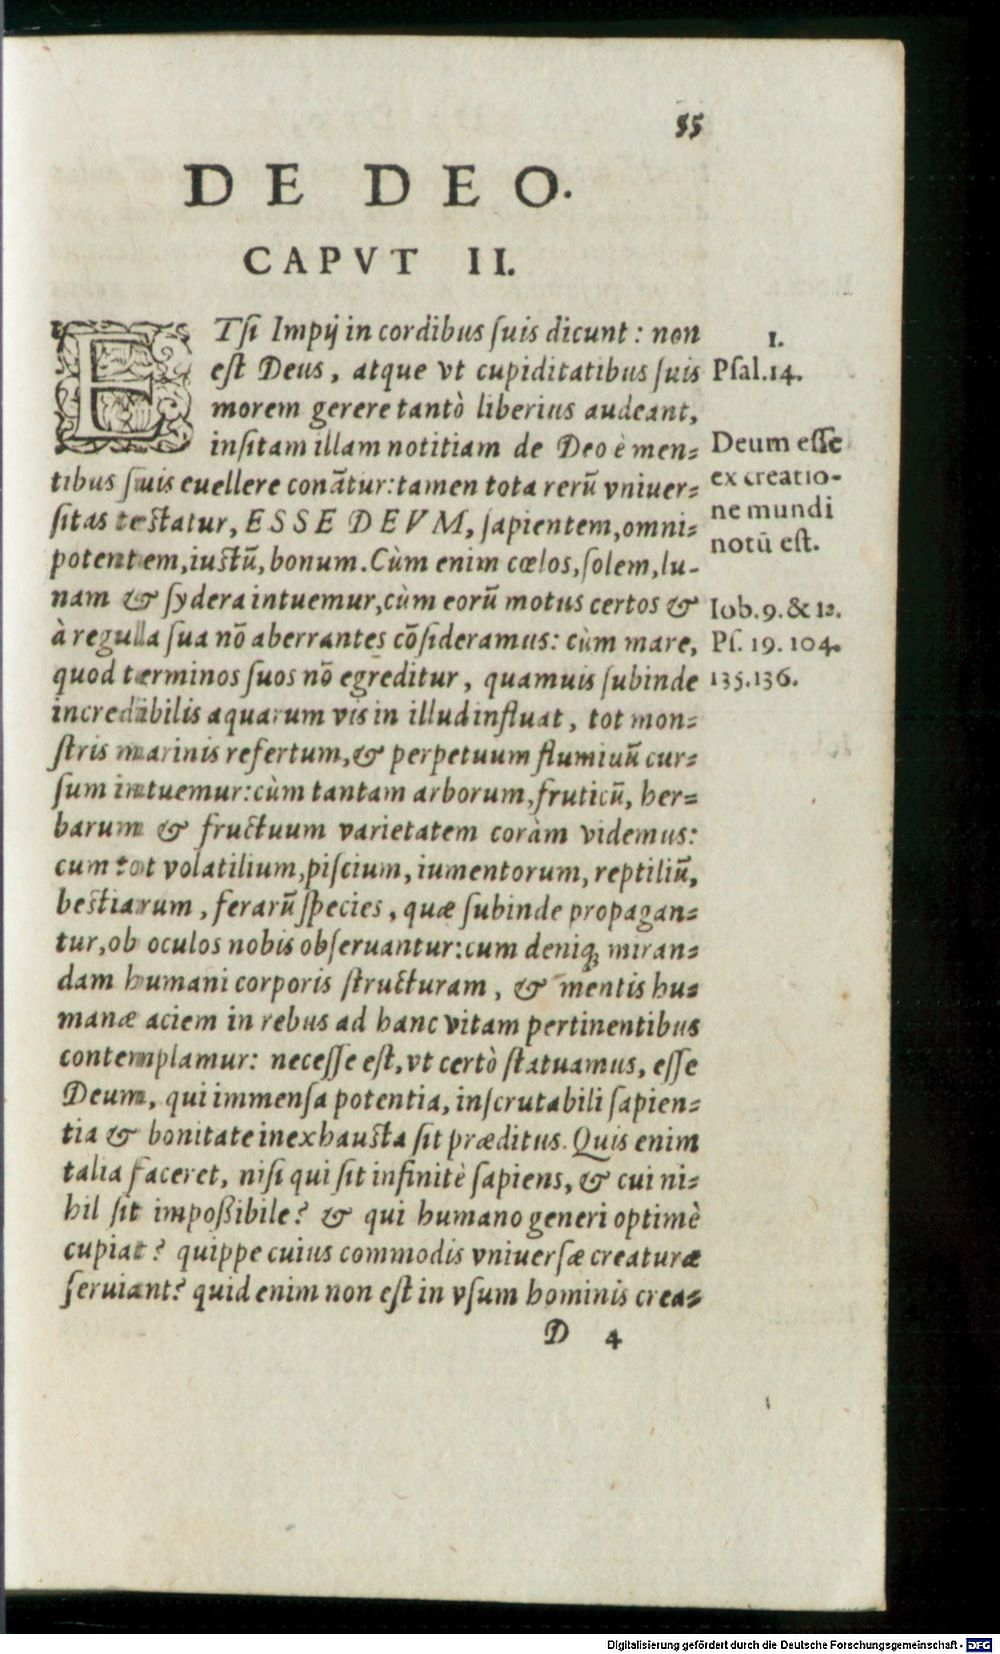 55
DE DEO.
CAPVT II.
ETſi Impij in cordibus ſuis dicunt: non
eſt Deus, atque vt cupiditatibus ſuis
morem gerere tantò liberius audeant,
inſitam illam notitiam de Deo è men-
tibus ſuis euellere conãtur: tamen tota rerũ vniuer-
ſitas teſtatur, ESSE DEVM, ſapientem, omni-
potentem, iuſtũ, bonum. Cùm enim cœlos, ſolem, lu-
nam & ſydera intuemur, cùm eorũ motus certos &
à regula ſua nõ aberrantes cõſideramus: cùm mare,
quod terminos ſuos nõ egreditur, quamuis ſubinde
incredibilis aquarum vis in illud influat, tot mon-
ſtris marinis refertum, & perpetuum flumiuũ cur-
ſum intuemur: cùm tantam arborum, fruticũ, her-
barum & fructuum varietatem coràm videmus:
cum tot volatilium, piſcium, iumentorum, reptiliũ,
beſtiarum, ferarũ ſpecies, quæ ſubinde propagan-
tur, ob oculos nobis obſeruantur: cum deniq; miran-
dam humani corporis ſtructuram, & mentis hu-
manæ aciem in rebus ad hanc vitam pertinentibus
contemplamur: neceſſe eſt, vt certò ſtatuamus, eſſe
Deum, qui immenſa potentia, inſcrutabili ſapien-
tia & bonitate inexhauſta ſit præditus. Quis enim
talia faceret, niſi qui ſit infinitè ſapiens, & cui ni-
hil ſit impoßibile? & qui humano generi optimè
cupiat? quippe cuius commodis vniuerſæ creaturæ
ſeruiant? quid enim non eſt in vſum hominis crea-
D 4
1.
Pſal.14.
Deum eſſe
ex creatio-
ne mundi
notũ eſt.
Iob. 9. & 12.
Pſ. 19. 104.
135.136.
Digitalisierung gefördert durch die Deutsche Forschungsgemeinschaft - DFG